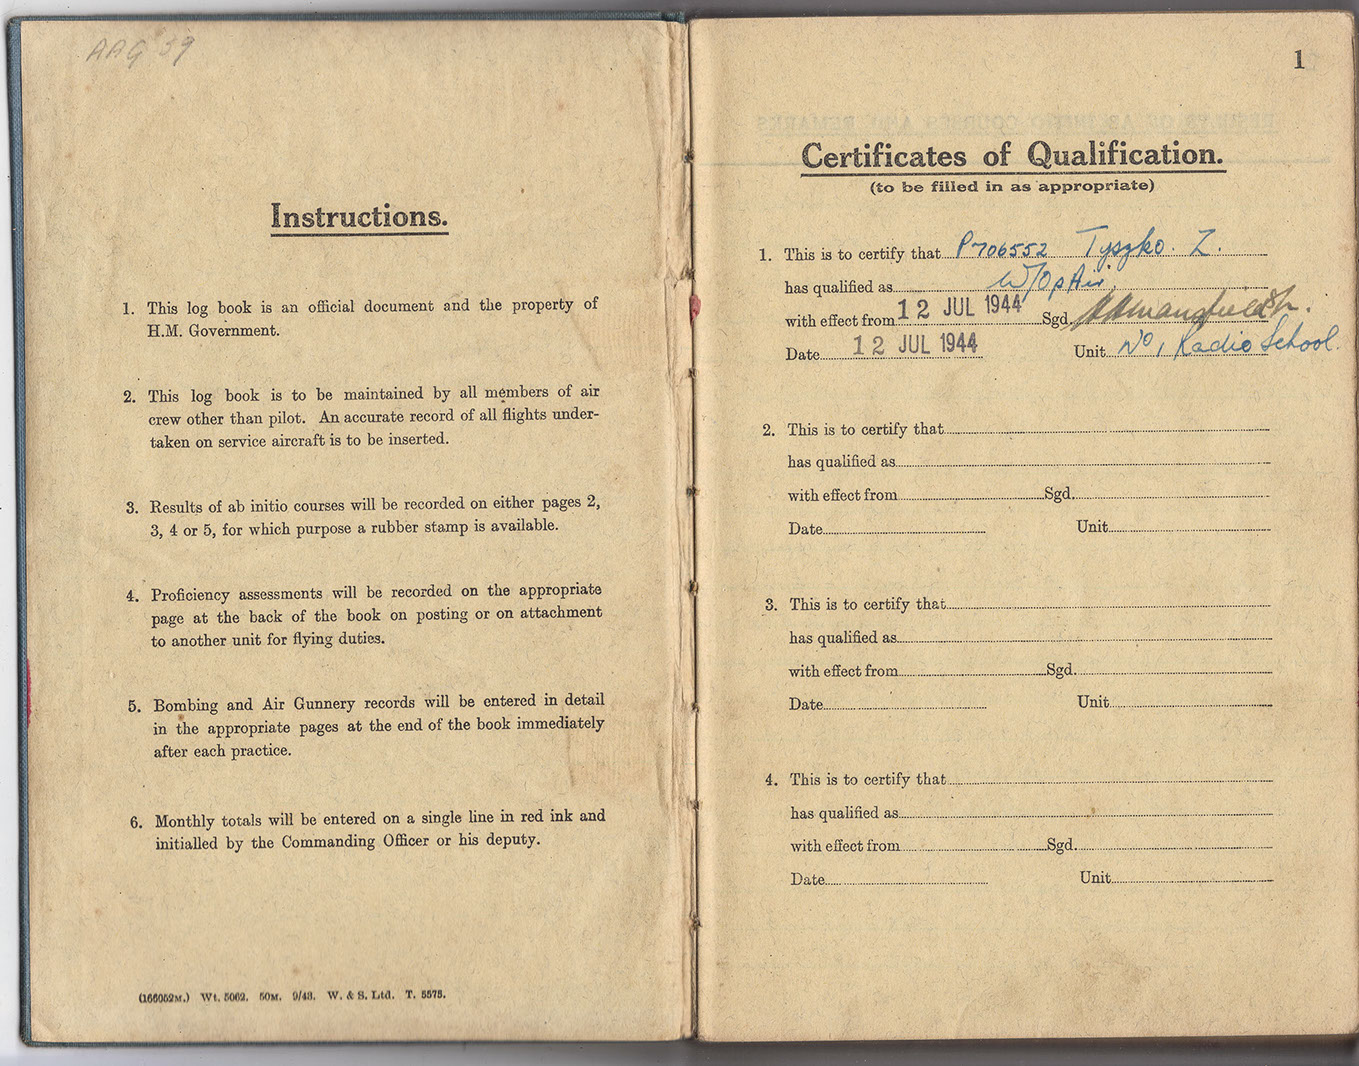 AAG 59
Instructions.
1. This log book is an official document and the property of
H.M. Government.
2. This log book is to be maintained by all members of air
crew other than pilot. An accurate record of all flights under-
taken on service aircraft is to be inserted.
3. Results of ab initio courses will be recorded on either pages 2,
3, 4 or 5, for which purpose a rubber stamp is available.
4. Proficiency assessments will be recorded on the appropriate
page at the back of the book on posting or on attachment
to another unit for flying duties.
5. Bombing and Air Gunnery records will be entered in detail
in the appropriate pages at the end of the book immediately
after each practice.
6. Monthly totals will be entered on a single line in red ink and
initialled by the Commanding Officer or his deputy.
(166052M.) Wt. 5062. 50M. 9/43. W. & S. Ltd. T. 5575.
1
Certificates of Qualification.
(to be filled in as appropriate)
1. This is to certify that P706552 Tyszko. Z.
has qualified as W/Op Air.
with effect from 12 JUL 1944 Sgd.
Date 12 JUL 1944 Unit No 1 Radio School.
2. This is to certify that
has qualified as
with effect from Sgd.
Date Unit
3. This is to certify that
has qualified as
with effect from Sgd.
Date Unit
4. This is to certify that
has qualified as
with effect from Sgd.
Date Unit